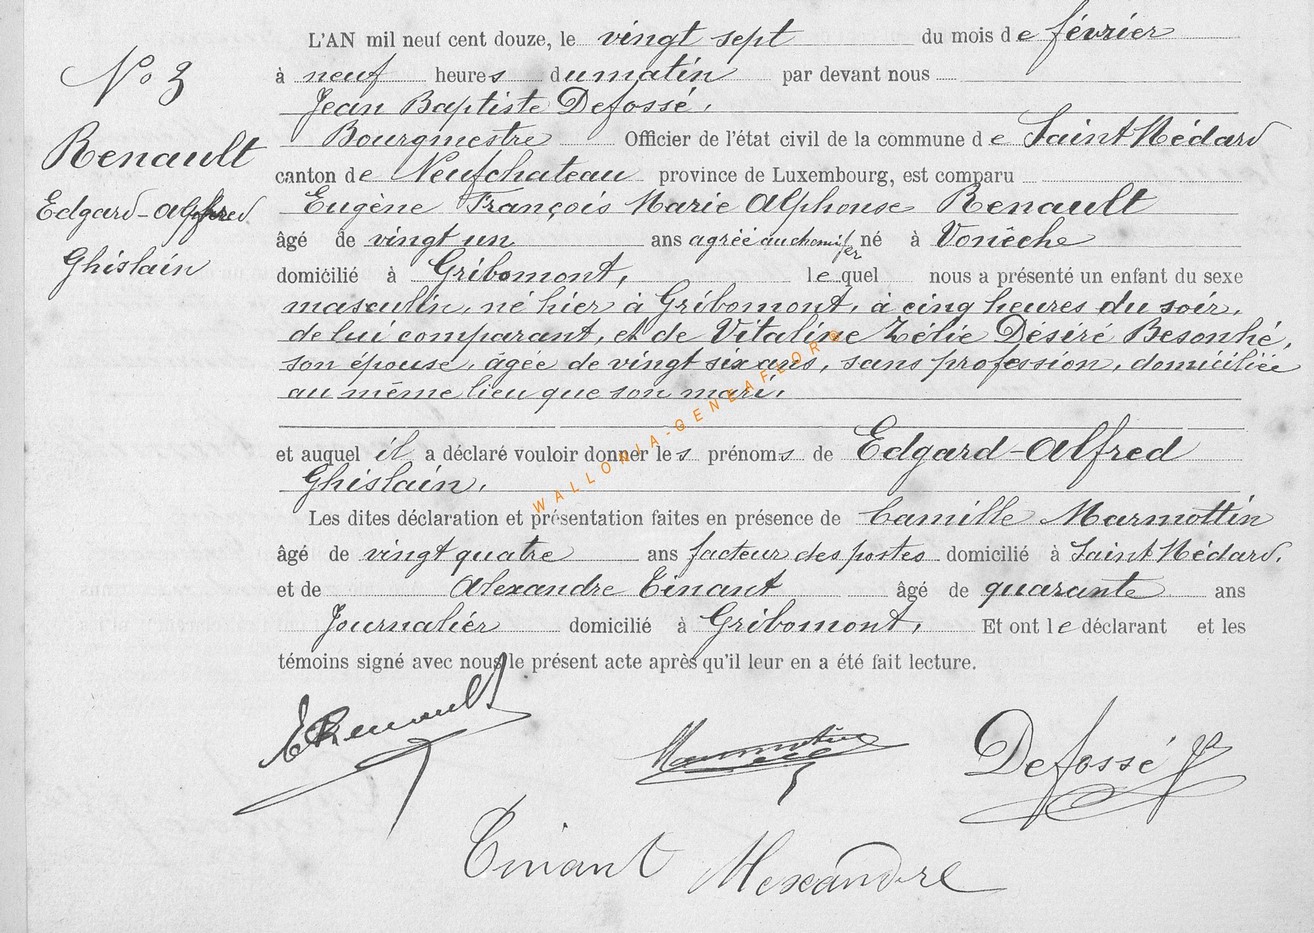 L'AN mil neuf cent douze, le vingt sept du mois de février
No 3
à neuf heures du matin par devant nous
Jean Baptiste Defossé,
Renault
Bourgmestre Officier de l'état civil de la commune de Saint Médard
canton de Neufchateau province de Luxembourg, est comparu
Edgard-Alfred
Eugène François Marie Alphonse Renault
âgé de vingt un ans agréé au chemin fer né à Vonêche
Ghislain
domicilié à Gribomont, lequel nous a présenté un enfant du sexe
masculin, né hier à Gribomont, à cinq heures du soir,
de lui comparant, et de Vitaline Zélie Désiré Besonhé,
son épouse, âgée de vingt six ans, sans profession, domiciliée
au même lieu que son mari.
et auquel il a déclaré vouloir donner les prénoms de Edgard-Alfred
Ghislain.
Les dites déclaration et présentation faites en présence de Camille Marmottin
âgé de vingt quatre ans facteur des postes domicilié à Saint Médard,
et de Alexandre Tinant âgé de quarante ans
Journalier domicilié à Gribomont, Et ont le déclarant et les
témoins signé avec nous le présent acte après qu'il leur en a été fait lecture.
E Renault
Marmottin
Defossé
Tinant Alexandre
WALLONIA-GENEAFLORE